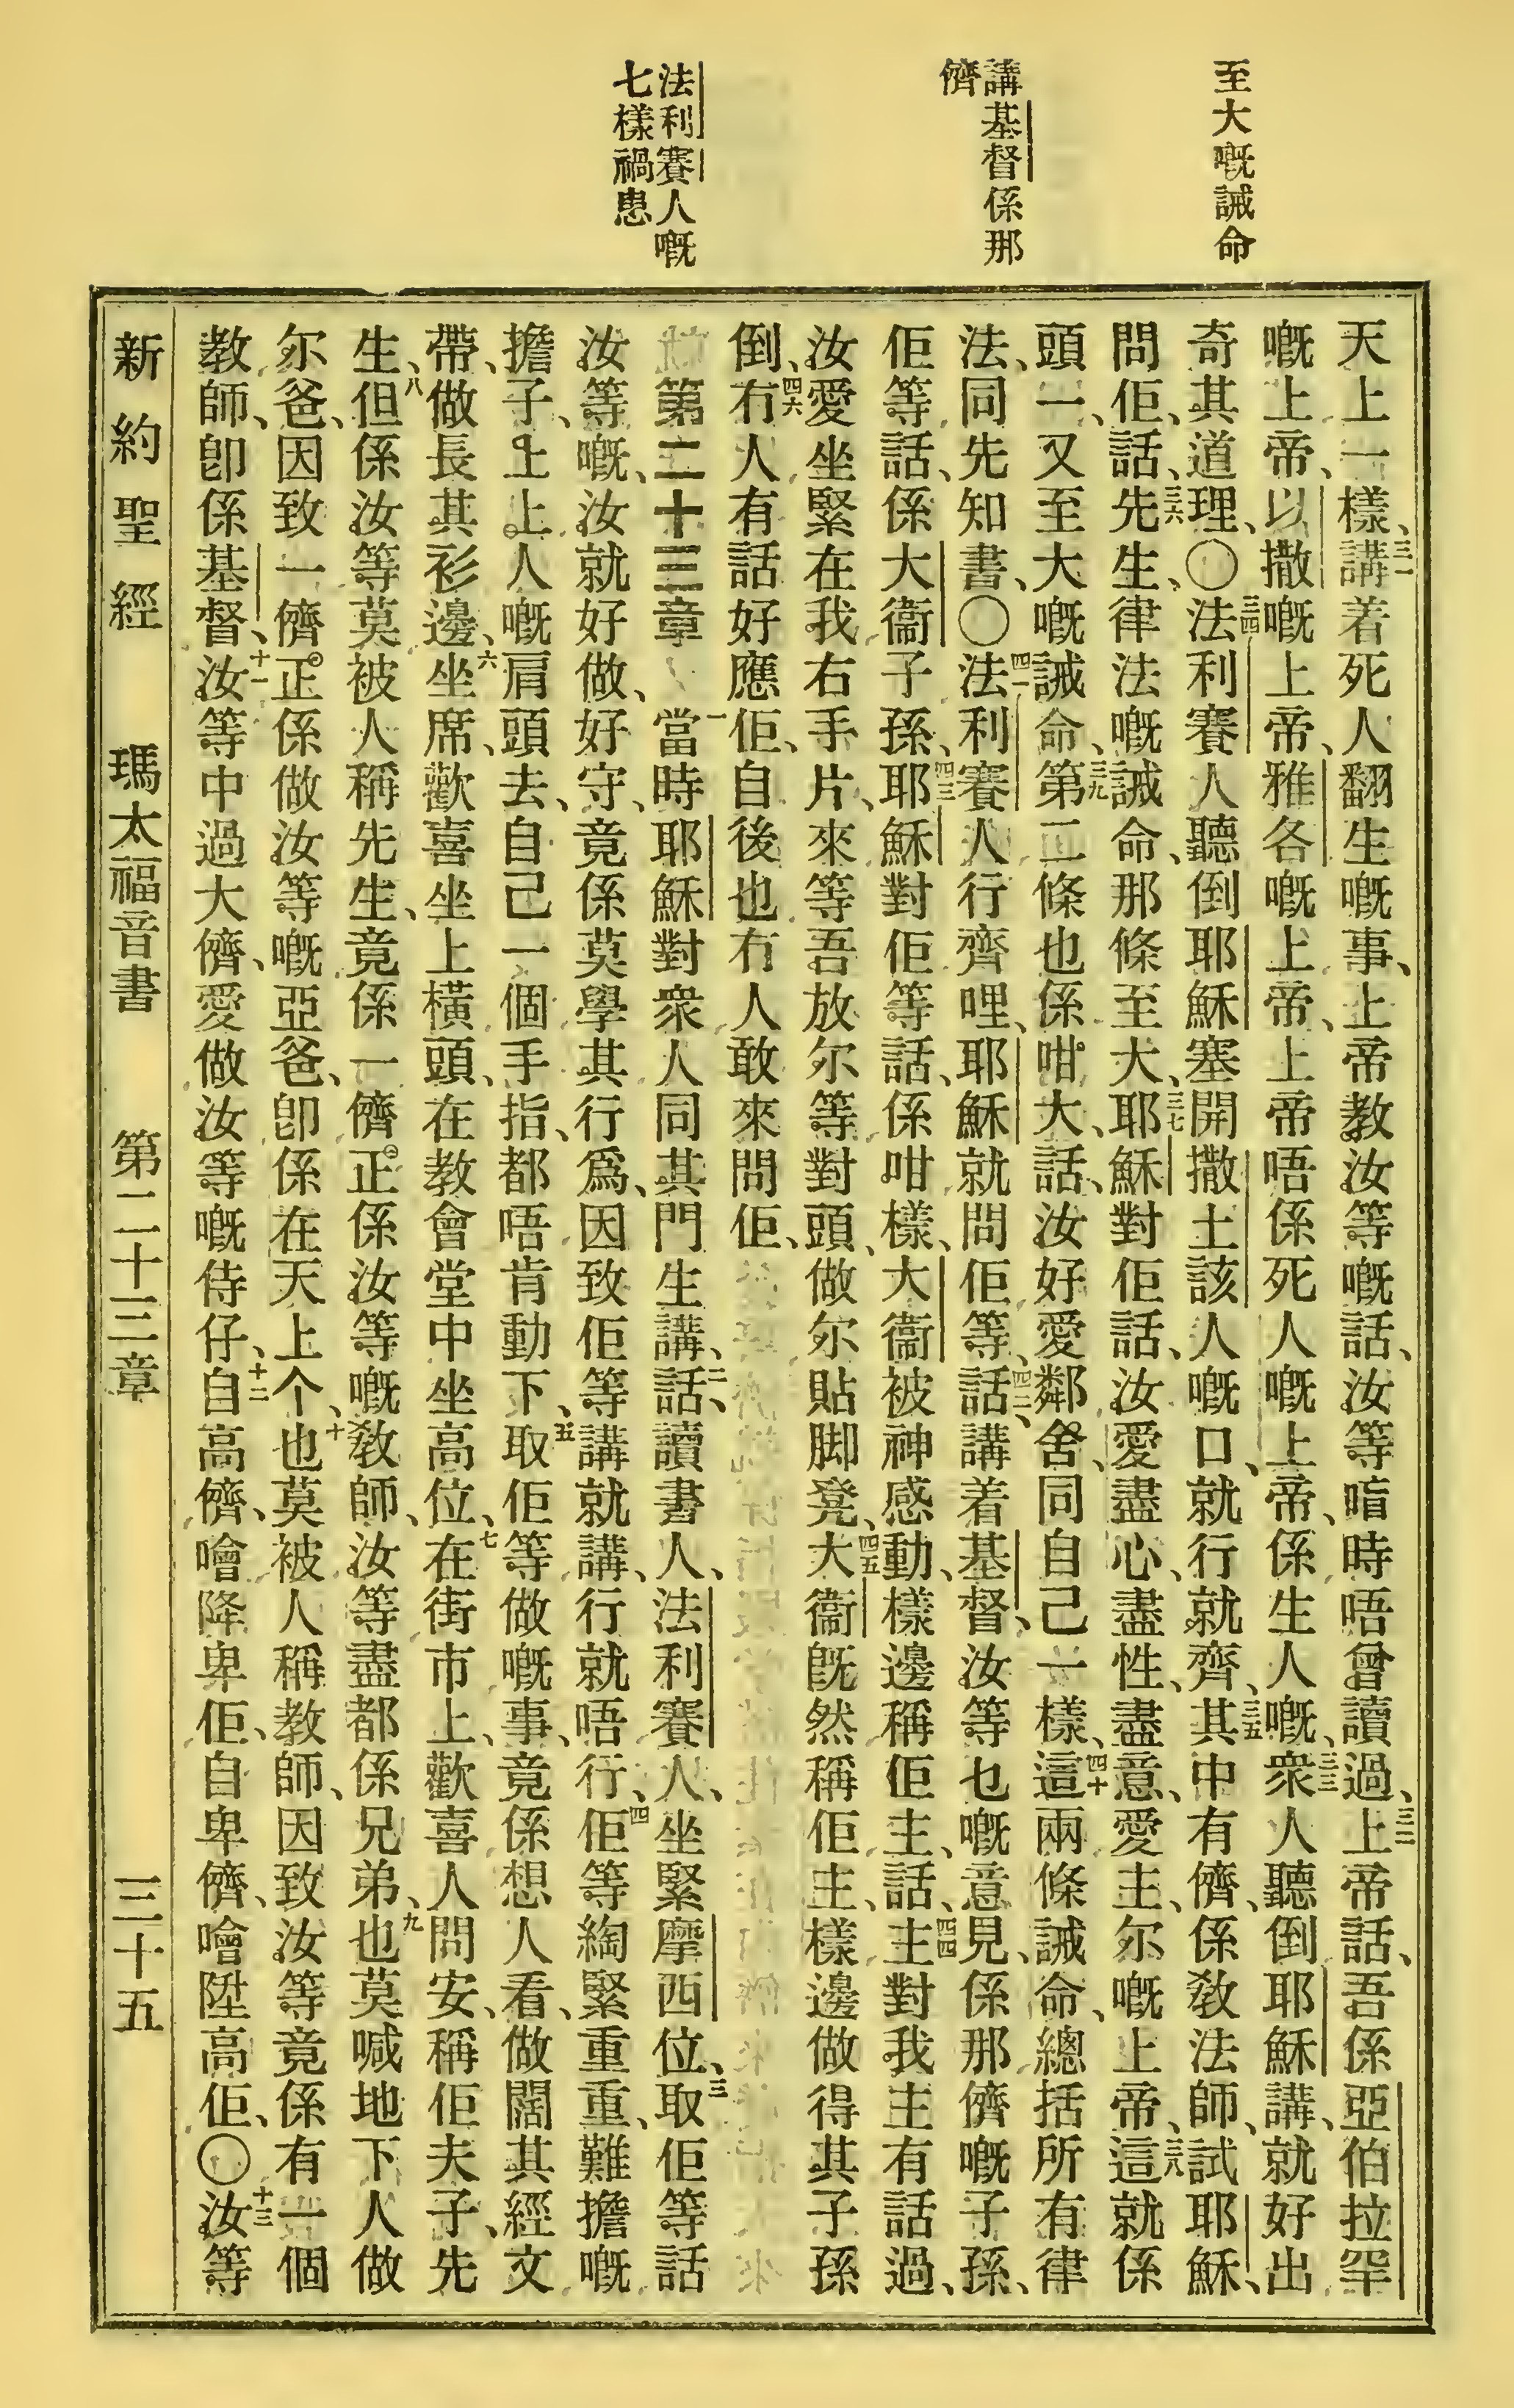 至大嘅誡命
講基督係那
儕
法利賽人嘅
七樣禍患
天上一樣、三一講着死人翻生嘅事、上帝教汝等嘅話、汝等喑時唔曾讀過、三二上帝話、吾係亞伯拉罕
嘅上帝、以撒嘅上帝、雅各嘅上帝、上帝唔係死人嘅上帝、係生人嘅、三三衆人聽倒耶穌講、就好出
奇其道理、〇三四法利賽人聽倒耶穌塞開撒土該人嘅口、就行就齊、三五其中有儕、係敎法師、試耶穌、
問佢、話、三六先生、律法嘅誡命、那條至大、三七耶穌對佢話、汝愛盡心、盡性、盡意、愛主、尔嘅上帝、三八這就係
頭一、又至大嘅誡命、三九第二條也係咁大、話、汝好愛鄰舍、同自己一樣、四十這兩條誡命、總括所有律
法、同先知書、〇四一法利賽人行齊哩、耶穌就問佢等、四二話、講着基督、汝等乜嘅意見、係那儕嘅子孫、
佢等話、係大衞子孫、四三耶穌對佢等話、係咁樣、大衞被神感動、樣邊稱佢主、話、四四主對我主有話過、
汝愛坐緊在我右手片、來等吾放尔等對頭、做尔貼脚凳、四五大衞旣然稱佢主、樣邊做得其子孫
倒、四六冇人有話好應佢、自後也冇人敢來問佢、
第二十三章　一當時耶穌對衆人同其門生講、二話、讀書人、法利賽人、坐緊摩西位、三取佢等話
汝等嘅、汝就好做、好守、竟係莫學其行爲、因致佢等講就講、行就唔行、四佢等綯緊重重、難擔嘅
擔子、上上人嘅肩頭去、自己一個手指、都唔肯動下、五取佢等做嘅事、竟係想人看、做闊其經文
帶、做長其衫邊、六坐席、歡喜坐上橫頭、在教會堂中坐高位、七在街市上、歡喜人問安、稱佢夫子、先
生、八但係汝等莫被人稱先生、竟係一儕正係汝等嘅敎師、汝等盡都係兄弟、九也莫喊地下人做
尔爸、因致一儕正係做汝等嘅亞爸、卽係在天上个、十也莫被人稱教師、因致汝等竟係有一個
教師、卽係基督、十一汝等中過大儕、愛做汝等嘅侍仔、十二自高儕、噲降卑佢、自卑儕、噲陞高佢、〇十三汝等
新約聖經　瑪太福音書　第二十三章　三十五